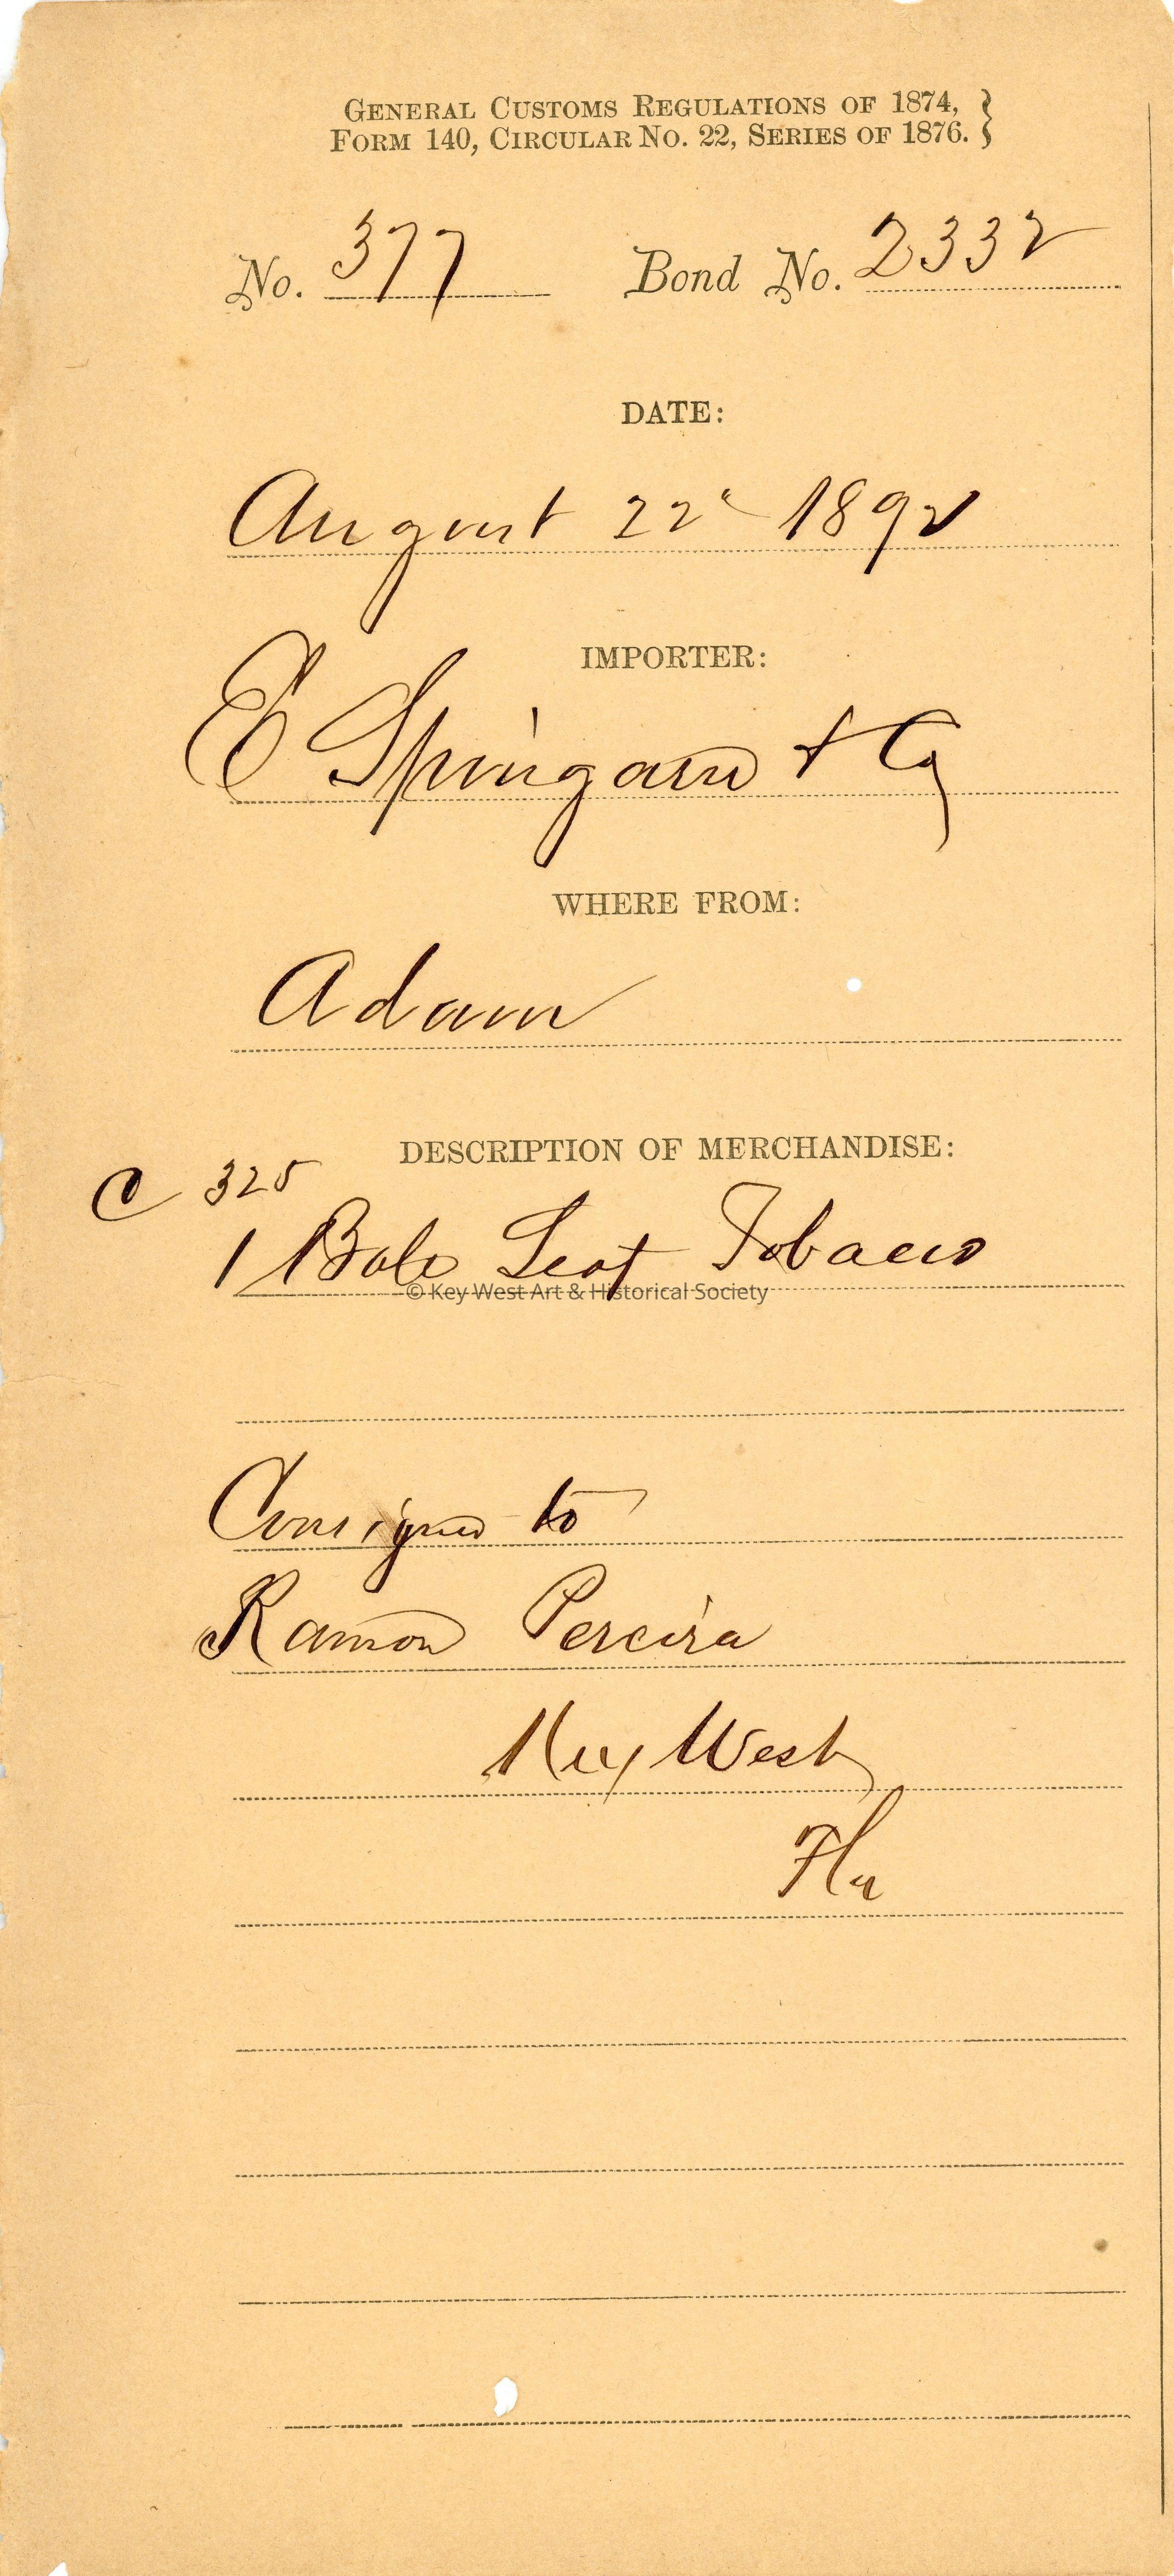 GENERAL CUSTOMS REGULATIONS OF 1874, }
FORM 140, CIRCULAR NO. 22, SERIES OF 1876. }
No. 377 Bond No. 2332
DATE:
August 22" 1892
IMPORTER:
E Spingarn & Co
WHERE FROM:
Adam
DESCRIPTION OF MERCHANDISE:
C 325
1 Bale Leaf Tobacco
© Key West Art & Historical Society
Consigned to
Ramon Pereira
Key West
Fla